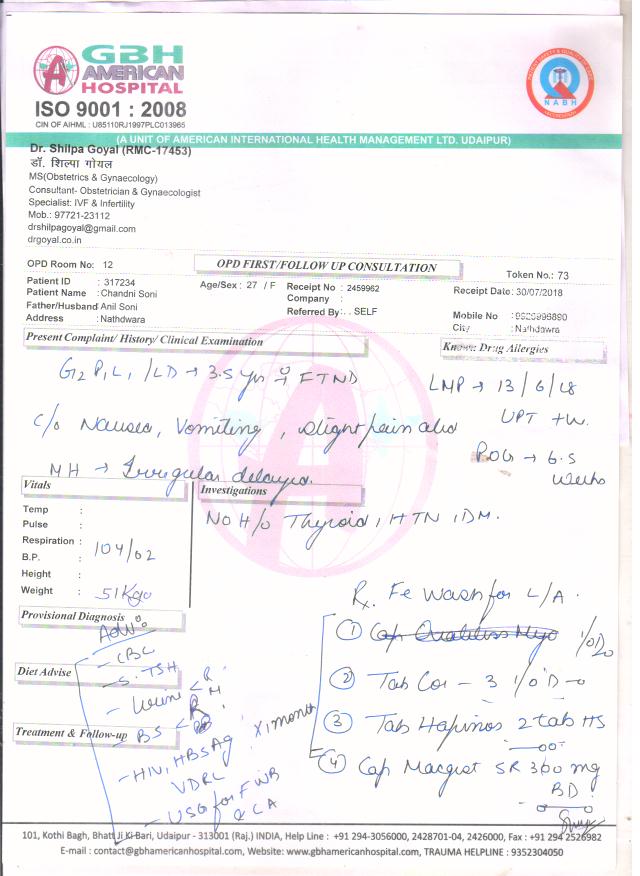 GBH
AMERICAN
HOSPITAL
ISO 9001 : 2008
CIN OF AIHML : U85110RJ1997PLC013965
NABH
(A UNIT OF AMERICAN INTERNATIONAL HEALTH MANAGEMENT LTD. UDAIPUR)
Dr. Shilpa Goyal (RMC-17453)
डॉ. शिल्पा गोयल
MS(Obstetrics & Gynaecology)
Consultant- Obstetrician & Gynaecologist
Specialist: IVF & Infertility
Mob.: 97721-23112
drshilpagoyal@gmail.com
drgoyal.co.in
OPD Room No: 12
OPD FIRST/FOLLOW UP CONSULTATION
Token No.: 73
Patient ID : 317234
Age/Sex : 27 / F
Receipt No : 2459962
Receipt Date: 30/07/2018
Patient Name : Chandni Soni
Company :
Father/Husband Anil Soni
Referred By: . SELF
Mobile No :
Address : Nathdwara
City : Nathdwara
Present Complaint/ History/ Clinical Examination
Known Drug Allergies
G2 P1 L1 / LD → 3.5 yrs FTND
LMP → 13/6/18
UPT +ve
C/o Nausea, Vomiting, slight pain abd
POG → 6.5 weeks
MH → Irregular delayed.
Vitals
Investigations
Temp :
Pulse :
Respiration :
B.P. : 104/62
Height :
Weight : 51 Kgs
No H/o Thyroid, HTN, DM.
Rx. Fe Wash for L/A.
Provisional Diagnosis
Adv:
- CBC
- S. TSH
- Urine < R M
- BS <
- HIV, HBsAg
VDRL
- USG for FWB
& CA
Diet Advise
Treatment & Follow-up
X 1 month
① Cap 1/OD
② Tab Cor-3 1/OD
③ Tab 2 tab HS
④ Cap SR 300 mg
BD
101, Kothi Bagh, Bhatt Ji Ki Bari, Udaipur - 313001 (Raj.) INDIA, Help Line : +91 294-3056000, 2428701-04, 2426000, Fax : +91 294 2526982
E-mail : contact@gbhamericanhospital.com, Website: www.gbhamericanhospital.com, TRAUMA HELPLINE : 9352304050